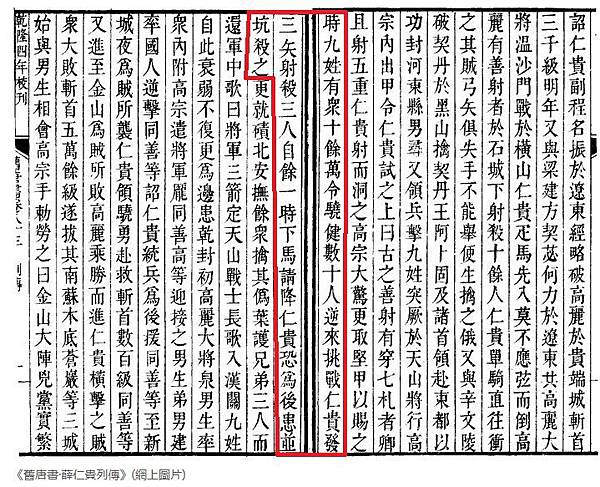 詔仁貴副程名振於遼東經略破高麗於貴端城斬首
三千級明年又與梁建方契苾何力於遼東共高麗大
將溫沙門戰於橫山仁貴疋馬先入莫不應弦而倒高
麗有善射者於石城下射殺十餘人仁貴單騎直往衝
之其賊弓矢俱失手不能舉便生擒之俄又與辛文陵
破契丹於黑山擒契丹王阿卜固及諸首領赴東都以
功封河東縣男尋又領兵擊九姓突厥於天山將行高
宗內出甲令仁貴試之上曰古之善射有穿七札者卿
且射五重仁貴射而洞之高宗大驚更取堅甲以賜之
時九姓有衆十餘萬令驍健數十人逆來挑戰仁貴發
三矢射殺三人自餘一時下馬請降仁貴恐爲後患並
坑殺之更就磧北安撫餘衆擒其僞葉護兄弟三人而
還軍中歌曰將軍三箭定天山戰士長歌入漢關九姓
自此衰弱不復更爲邊患乾封初高麗大將泉男生率
衆內附高宗遣將軍龐同善高等迎接之男生弟男建
率國人逆擊同善等詔仁貴統兵爲後援同善等至新
城夜爲賊所襲仁貴領驍勇赴救斬首數百級同善等
又進至金山爲賊所敗高麗乘勝而進仁貴橫擊之賊
衆大敗斬首五萬餘級遂拔其南蘇木底蒼巖等三城
始與男生相會高宗手勅勞之曰金山大陣兇黨實繁
乾隆四年校刊
舊唐書卷八十三 列傳
《舊唐書·薛仁貴列傳》(網上圖片)